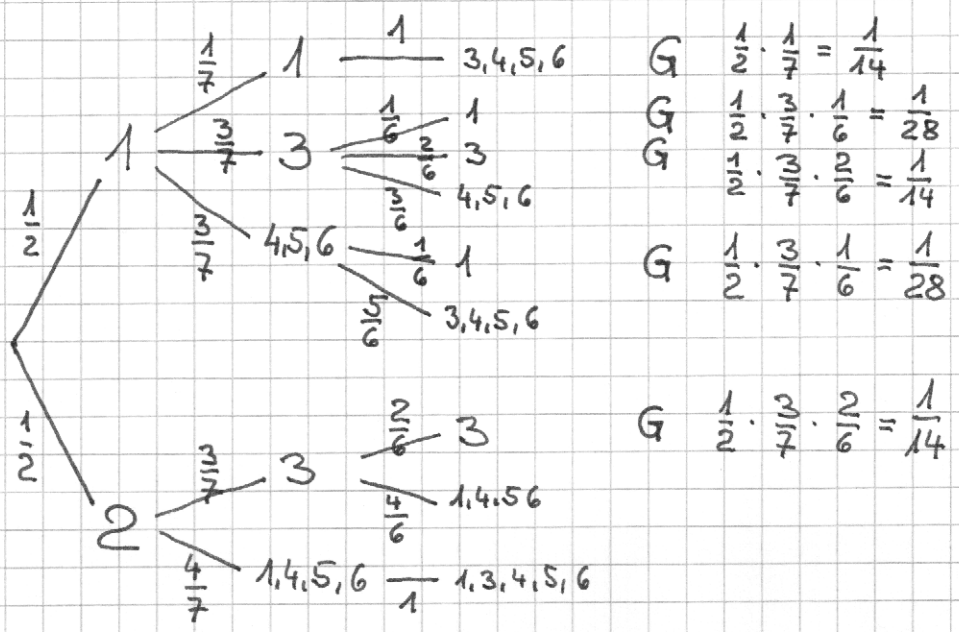 1/7 1 1 3,4,5,6 G 1/2 · 1/7 = 1/14
1/6 1 G 1/2 · 3/7 · 1/6 = 1/28
1 3/7 3 2/6 3 G 1/2 · 3/7 · 2/6 = 1/14
3/6 4,5,6
1/2 3/7 4,5,6 1/6 1 G 1/2 · 3/7 · 1/6 = 1/28
5/6 3,4,5,6
1/2 2/6 3 G 1/2 · 3/7 · 2/6 = 1/14
3/7 3 4/6 1,4,5 6
2
4/7 1,4,5,6 1 1,3,4,5,6